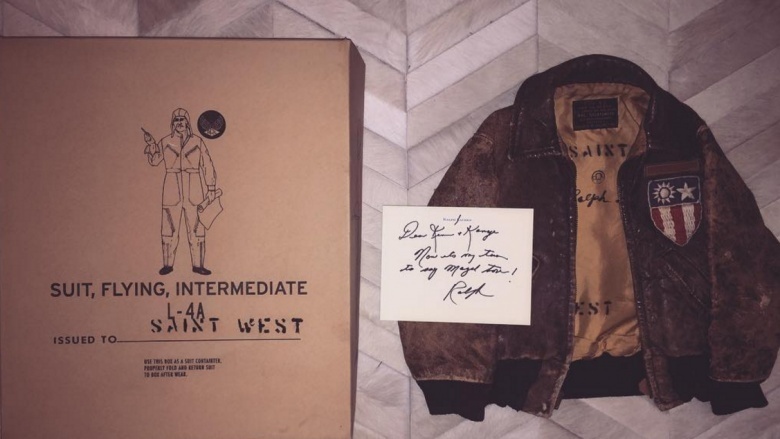 SUIT, FLYING, INTERMEDIATE
L-4A
SAINT WEST
ISSUED TO
USE THIS BOX AS A SUIT CONTAINER,
PROPERLY FOLD AND RETURN SUIT
TO BOX AFTER WEAR.
Dear Kim & Kanye
Now its my turn
to say Mazel tov!
Ralph
SAINT
Ralph
EST